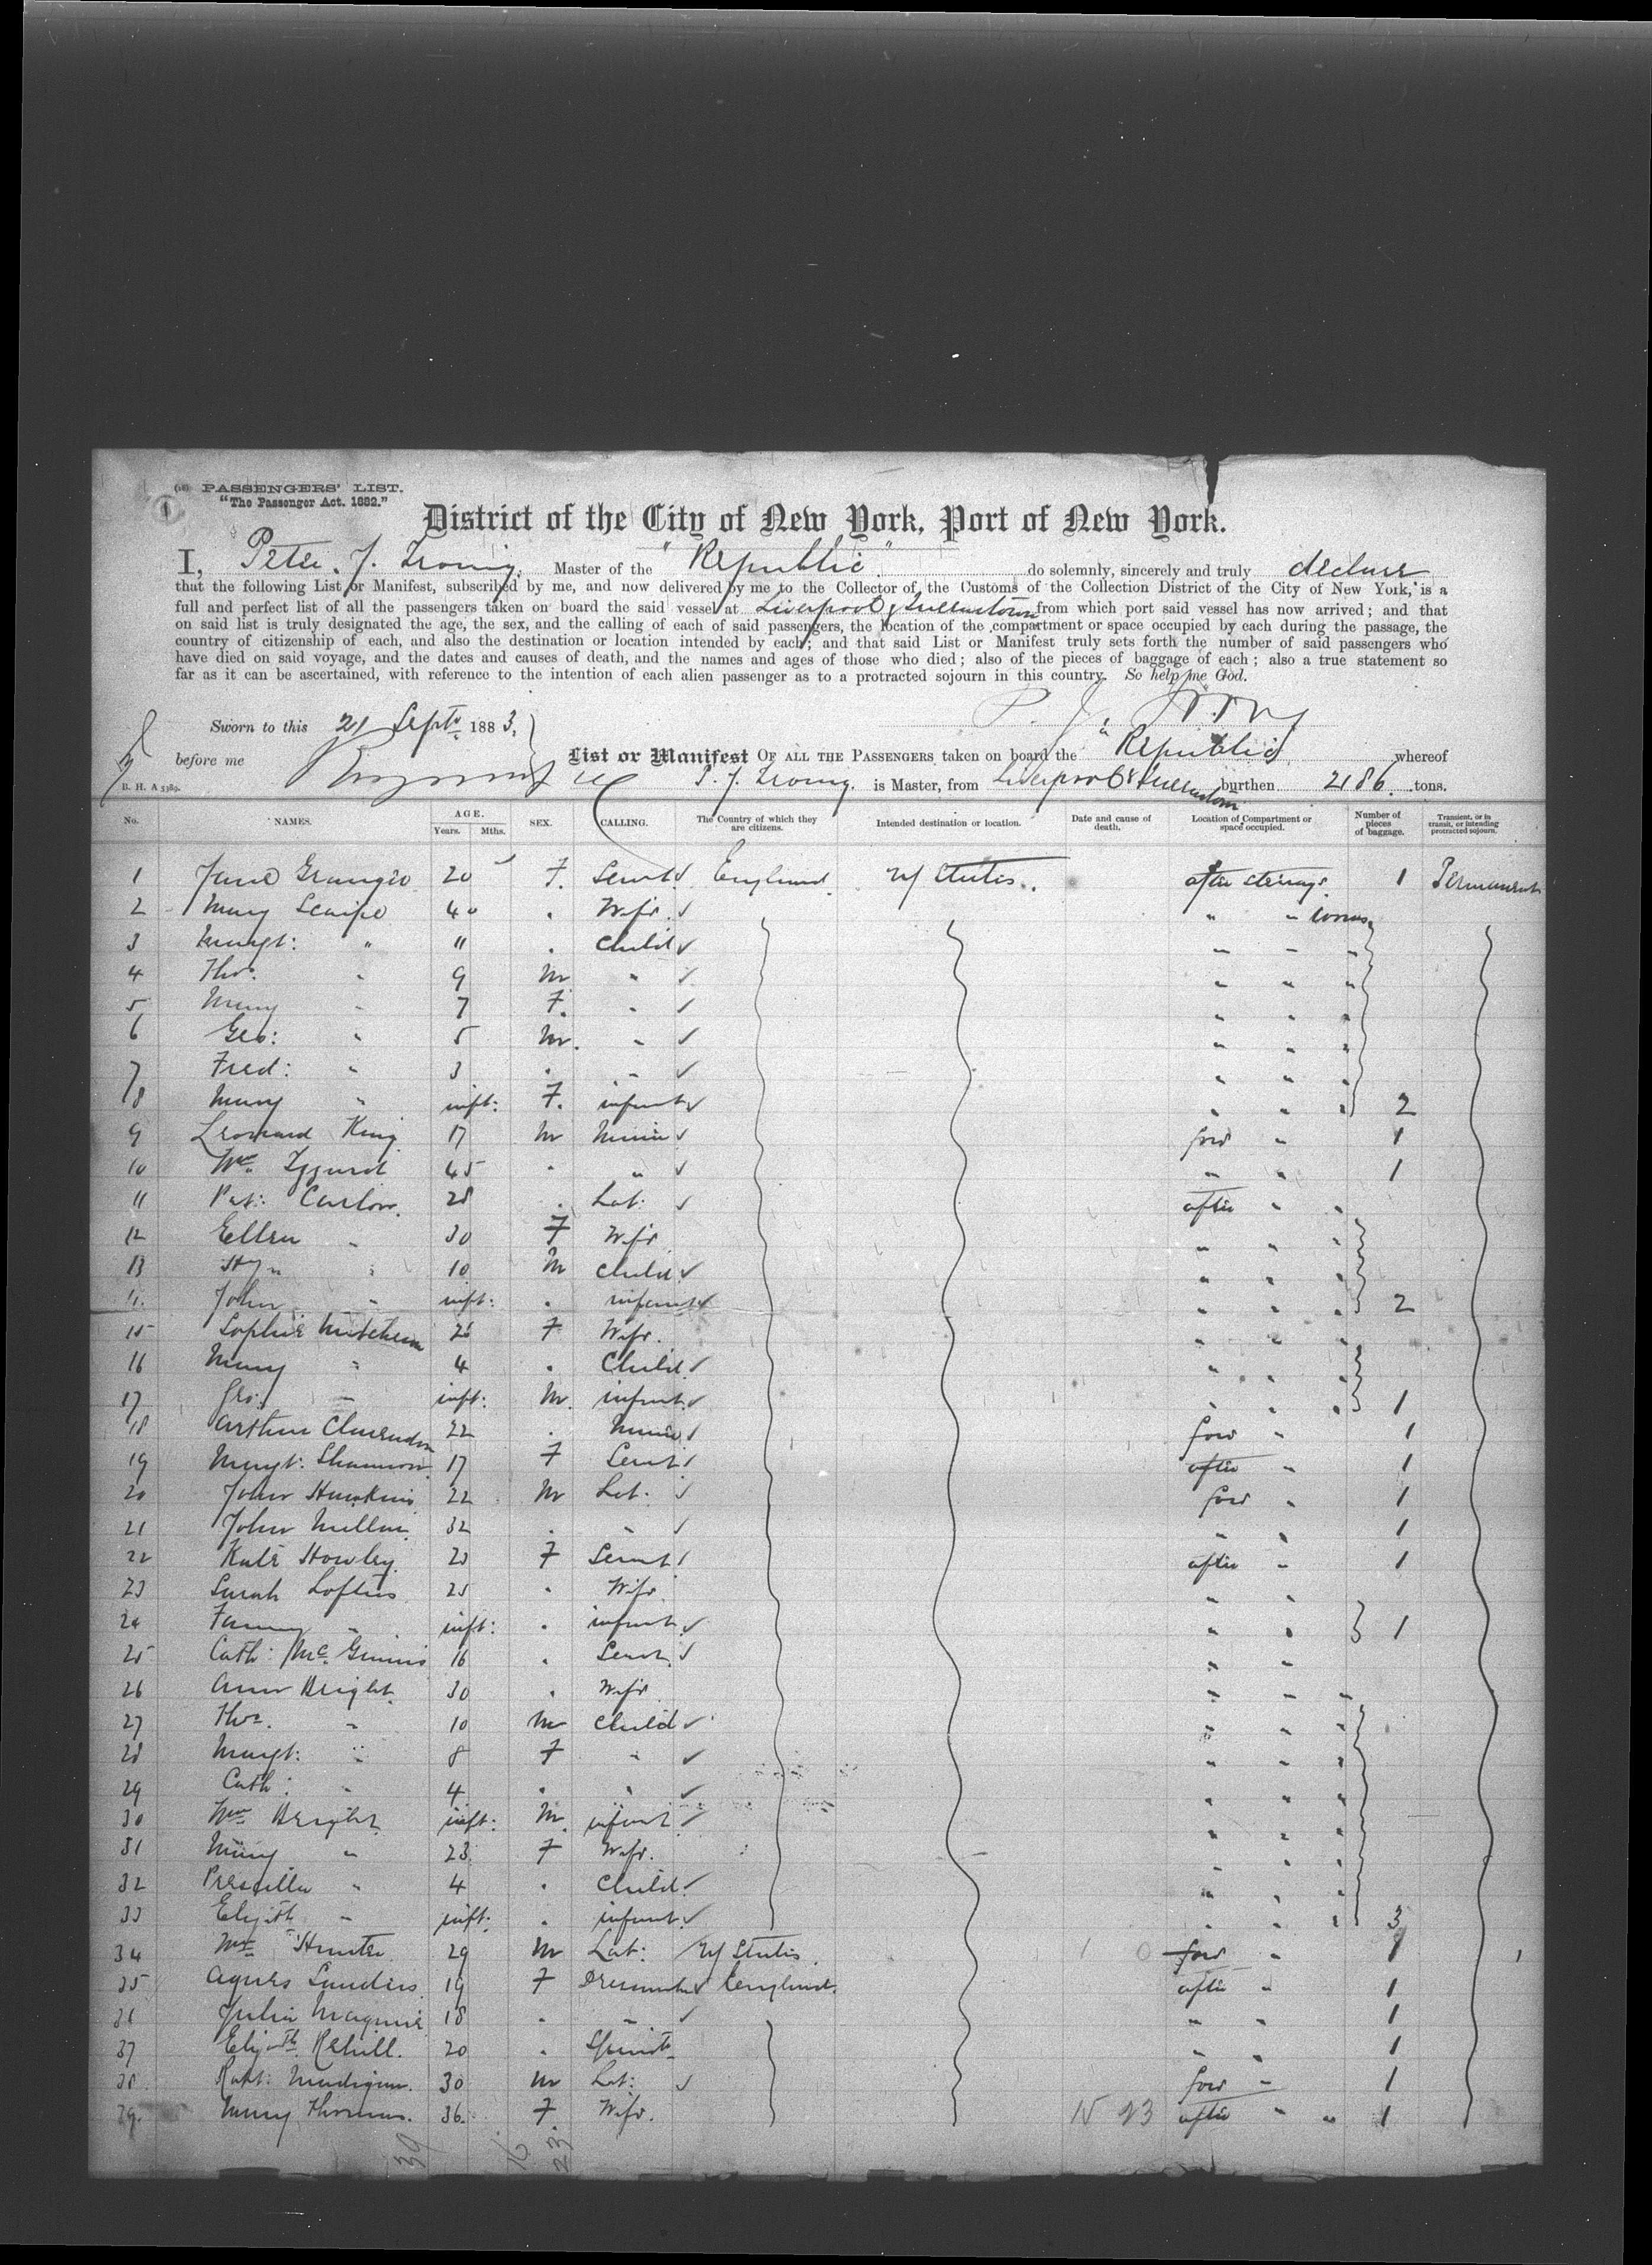 (18) PASSENGERS' LIST.
"The Passenger Act. 1882."
1
District of the City of New York, Port of New York.
I, Peter J. Irving, Master of the "Republic" do solemnly, sincerely and truly declare
that the following List or Manifest, subscribed by me, and now delivered by me to the Collector of the Customs of the Collection District of the City of New York, is a
full and perfect list of all the passengers taken on board the said vessel at Liverpool & Queenstown from which port said vessel has now arrived; and that
on said list is truly designated the age, the sex, and the calling of each of said passengers, the location of the compartment or space occupied by each during the passage, the
country of citizenship of each, and also the destination or location intended by each; and that said List or Manifest truly sets forth the number of said passengers who
have died on said voyage, and the dates and causes of death, and the names and ages of those who died; also of the pieces of baggage of each; also a true statement so
far as it can be ascertained, with reference to the intention of each alien passenger as to a protracted sojourn in this country. So help me God.
P. J. Irving
Sworn to this 21 Septr 1883,
before me
List or Manifest OF ALL THE PASSENGERS taken on board the "Republic" whereof
B. H. A 3389.
P. J. Irving is Master, from Liverpool & Queenstown burthen 2186 tons.
No. NAMES. AGE. Years. Mths. SEX. CALLING. The Country of which they are citizens. Intended destination or location. Date and cause of death. Location of Compartment or space occupied. Number of pieces of baggage. Transient, or in transit, or intending protracted sojourn.
1 Jane 20 F. Servt England U States after steerage 1 Permanent
2 Mary 40 " Wife " "
3 Margt: " 11 " Child " " "
4 Thos. " 9 M " " " "
5 Mary " 7 F. " " " "
6 Geo: " 5 M. " " " "
7 Fred: " 3 " " " " "
8 Mary " inft: F. infant " " " 2
9 Leonard King 17 M Miner ford " 1
10 Wm. 45 " " " " 1
11 Pat: 28 " Lab: after " "
12 Ellen " 30 F Wife " " "
13 Hy " 10 M Child " " "
14 John " inft: " infant " " " 2
15 Sophie 26 F Wife. " " "
16 Mary " 4 " Child " " "
17 Geo: " inft: M. infant " " " 1
18 Arthur Clarendon 22 " Miner ford " 1
19 Margt: Shannon 17 F Servt after " 1
20 John Hawkins 22 M Lab: ford " 1
21 John 32 " " " " 1
22 Kate Howley 23 F Servt after " 1
23 Sarah Loftus 25 " Wife " "
24 Fanny " inft: " infant " " 1
25 Cath: McGinnis 16 " Servt " "
26 Ann Height 30 " Wife " " "
27 Thos. " 10 M Child " " "
28 Margt: " 8 F " " " "
29 Cath: " 4 " " " " "
30 Wm Height inft: M. infant " " "
31 Mary " 23 F Wife. " " "
32 Prescilla " 4 " Child " " "
33 Elizth " inft: " infant " " " 3
34 Wm Hunter 29 M Lab: U States 1 0 ford " 1
35 Agnes Sanders 19 F Dressmaker England. after " 1
36 Julia Maguire 18 " " " " 1
37 Elizth. Rehill. 20 " Spinst " " 1
38 Robt: Madigan. 30 M Lab: ford " 1
39. Mary Thomas. 36. F. Wife. 15 23 after " " 1
39 16 23